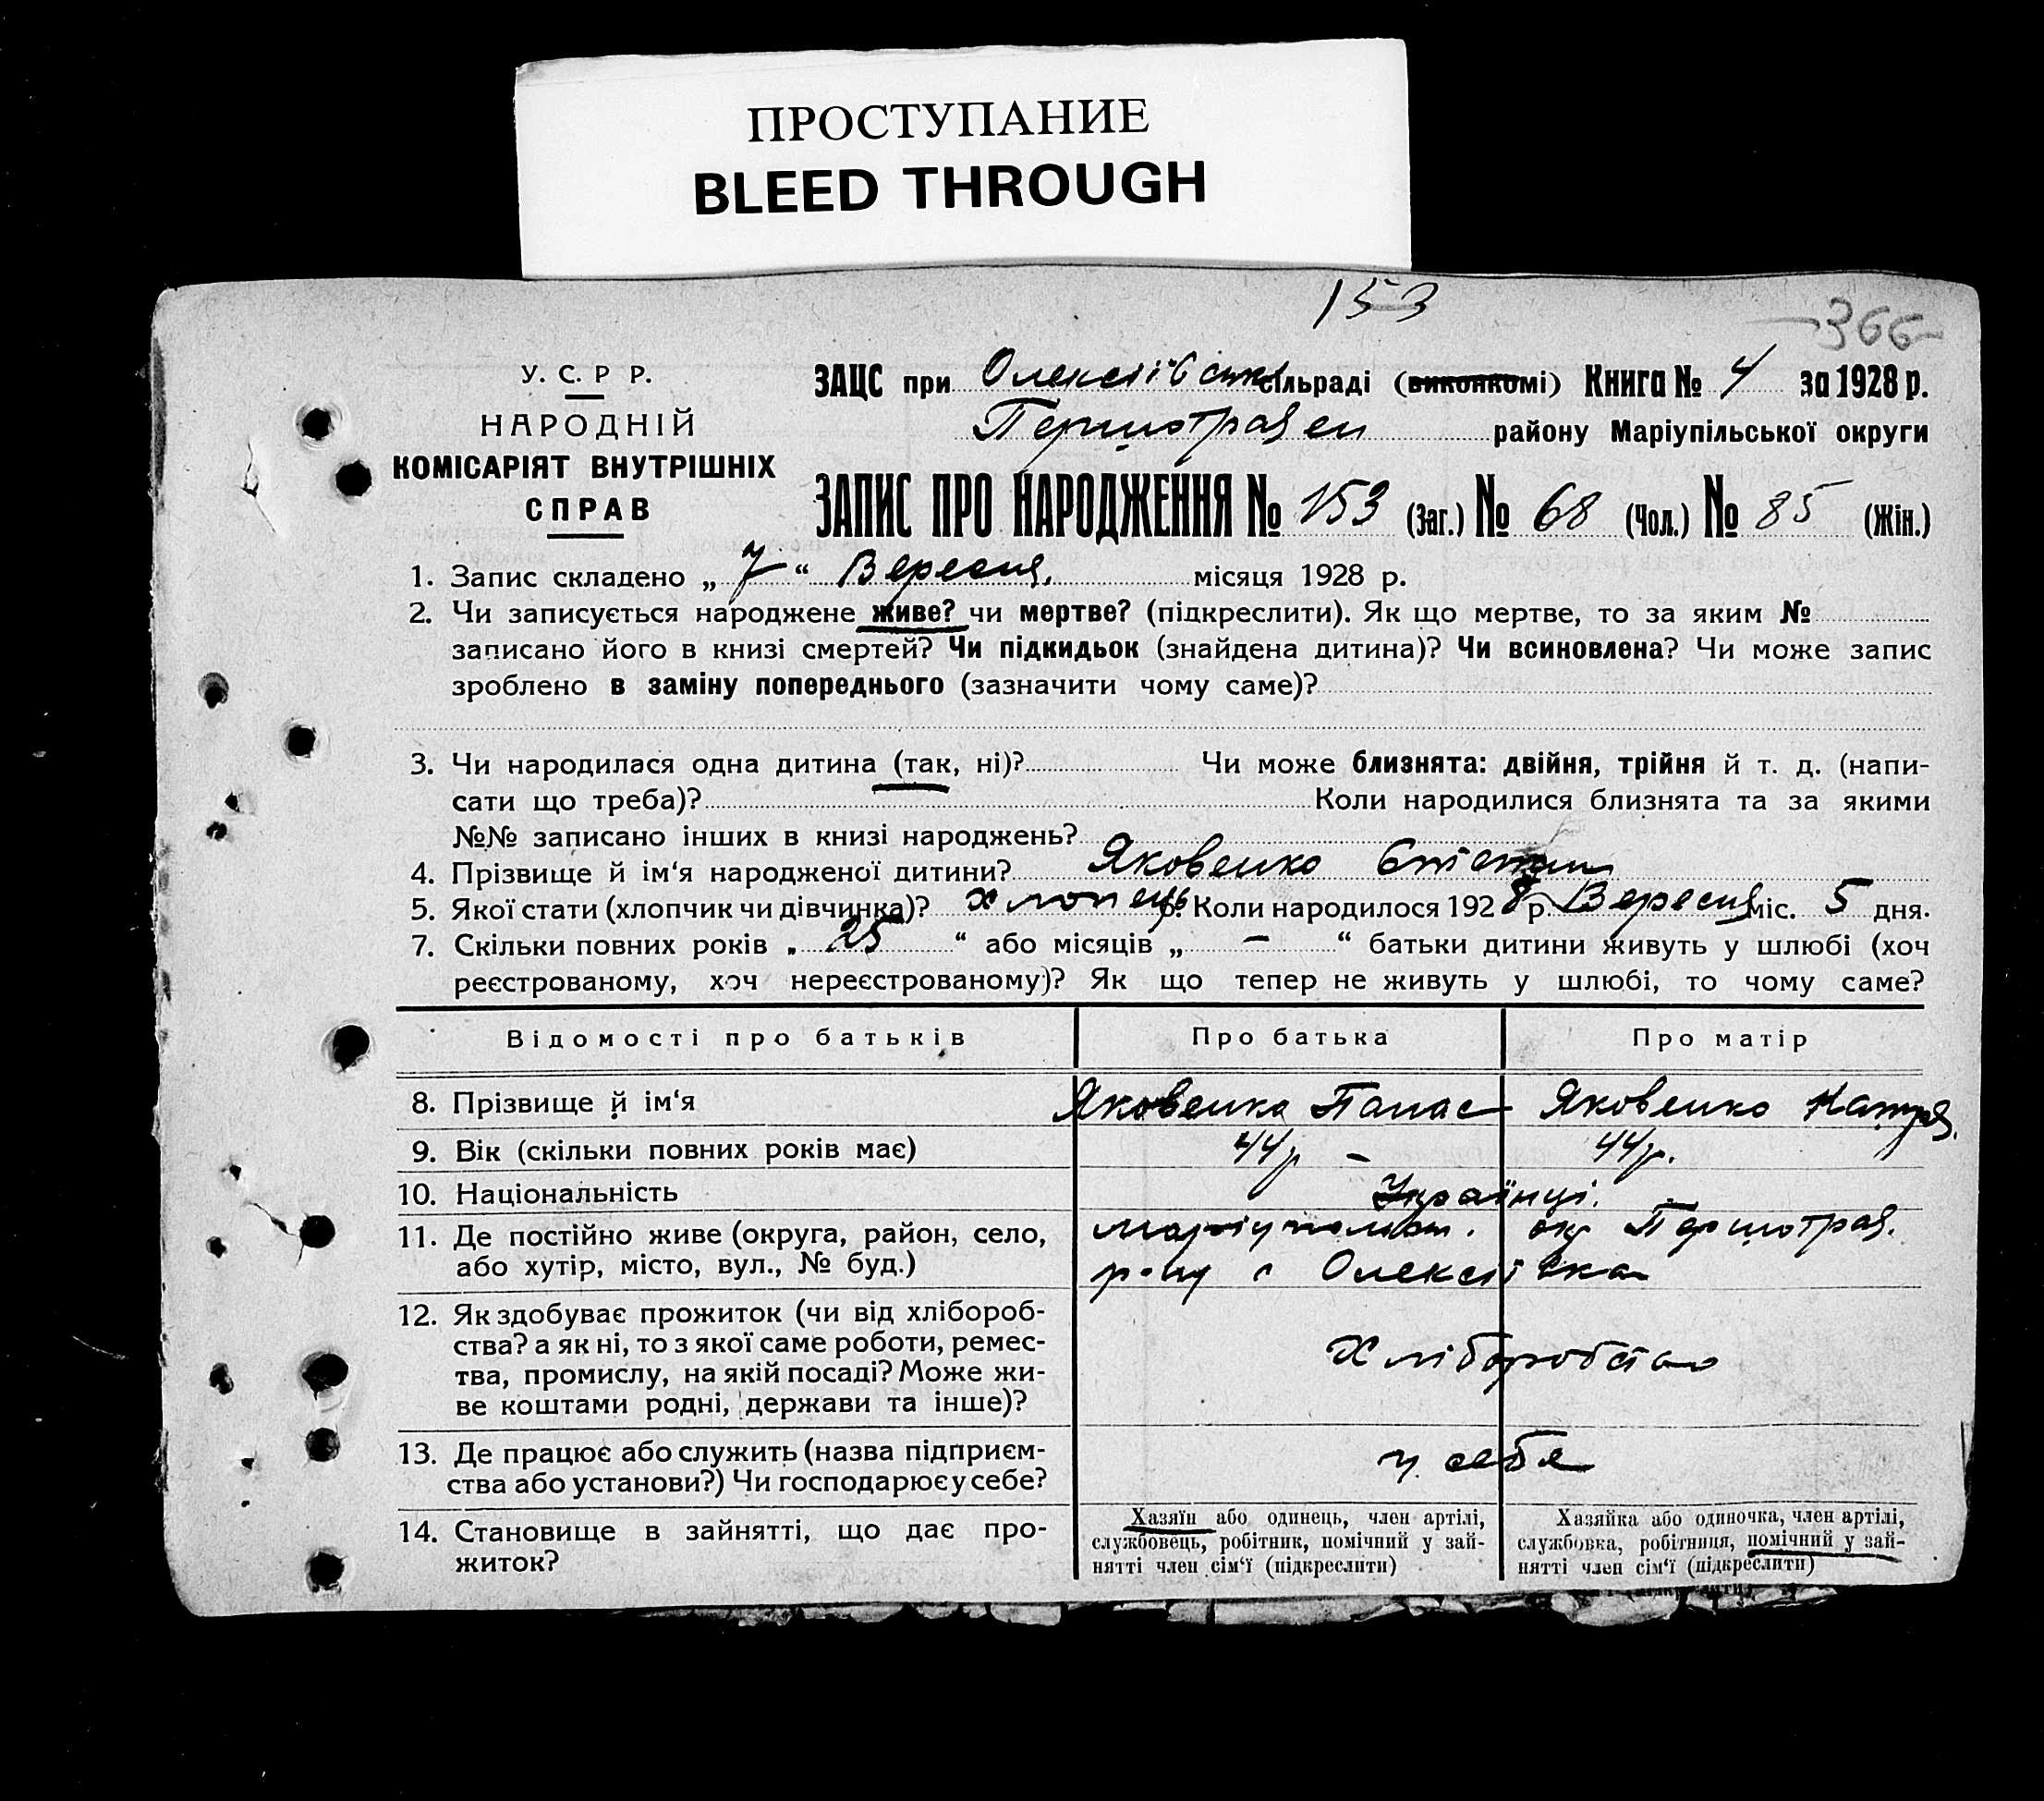 ПРОСТУПАНИЕ
BLEED THROUGH
153
366
У. С. Р Р.
НАРОДНІЙ
КОМІСАРІЯТ ВНУТРІШНІХ
СПРАВ
ЗАЦС при Олексіївській сільраді (виконкомі) Книга № 4 за 1928 р.
Першотравен району Маріупільської округи
ЗАПИС ПРО НАРОДЖЕННЯ № 153 (Заг.) № 68 (Чол.) № 85 (Жін.)
1. Запис складено „ 7 “ Вересня місяця 1928 р.
2. Чи записується народжене живе? чи мертве? (підкреслити). Як що мертве, то за яким №
записано його в книзі смертей? Чи підкидьок (знайдена дитина)? Чи всиновлена? Чи може запис
зроблено в заміну попереднього (зазначити чому саме)?
3. Чи народилася одна дитина (так, ні)? Чи може близнята: двійня, трійня й т. д. (напи-
сати що треба)? Коли народилися близнята та за якими
№№ записано інших в книзі народжень?
4. Прізвище й ім‘я народженої дитини? Яковенко Степан
5. Якої стати (хлопчик чи дівчинка)? хлопець 6. Коли народилося 1928 р. Вересня міс. 5 дня.
7. Скільки повних років „ 25 “ або місяців „ – “ батьки дитини живуть у шлюбі (хоч
реєстрованому, хоч нереєстрованому)? Як що тепер не живуть у шлюбі, то чому саме?
Відомості про батьків Про батька Про матір
8. Прізвище й ім‘я Яковенко Панас Яковенко Катря.
9. Вік (скільки повних років має) 44 р – 44 р.
10. Національність Українці.
11. Де постійно живе (округа, район, село, Маріупольськ. окр Першотрав.
або хутір, місто, вул., № буд.) р-ну с Олексіївка
12. Як здобуває прожиток (чи від хлібороб-
ства? а як ні, то з якої саме роботи, ремес- Хліборобство
тва, промислу, на якій посаді? Може жи-
ве коштами родні, держави та інше)?
13. Де працює або служить (назва підприєм- у себе
ства або установи?) Чи господарює у себе?
14. Становище в зайнятті, що дає про-
житок?
Хазяїн або одинець, член артілі,
службовець, робітник, помічний у зай-
нятті член сім‘ї (підкреслити)
Хазяйка або одиночка, член артілі,
службовка, робітниця, помічний у зай-
нятті член сім‘ї (підкреслити)